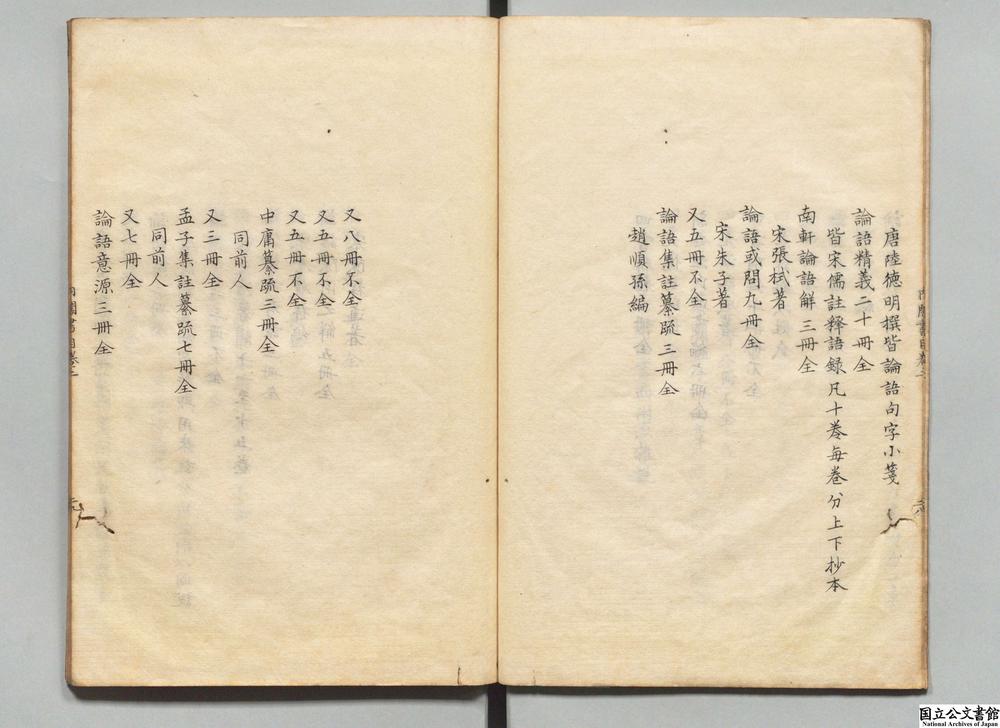 唐陸德明撰皆論語句字小箋
論語精義二十冊全
皆宋儒註釋語録凡十巻每巻分上下抄本
南軒論語解三冊全
宋張栻著
論語或問九冊全
宋朱子著
又五冊不全
論語集註纂疏三冊全
趙順孫編
又八冊不全
又五冊不全
又五冊不全
中庸纂疏三冊全
同前人
又三冊全
孟子集註纂疏七冊全
同前人
又七冊全
論語意源三冊全
国立公文書館
National Archives of Japan